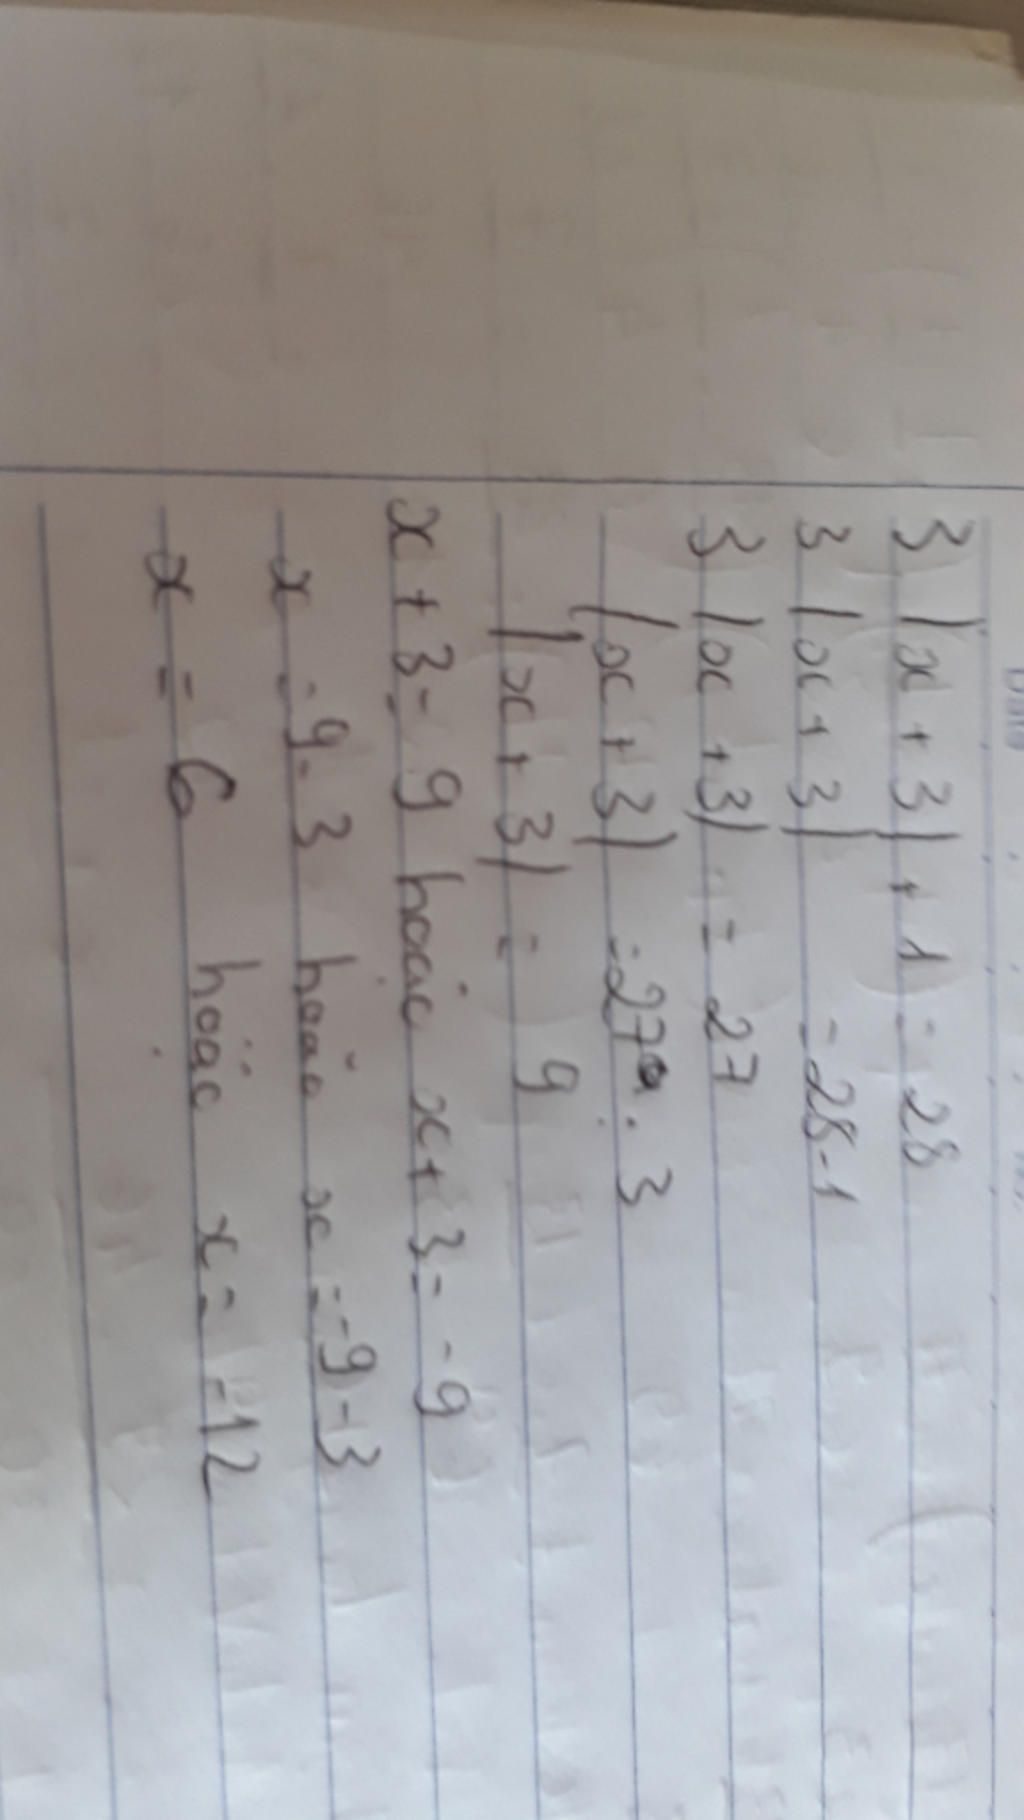 3 |x + 3| + 1 = 28
3 |x + 3| = 28 - 1
3 |x + 3| = 27
|x + 3| = 27 : 3
|x + 3| = 9
x + 3 = 9 hoặc x + 3 = -9
x = 9 - 3 hoặc x = -9 - 3
x = 6 hoặc x = -12